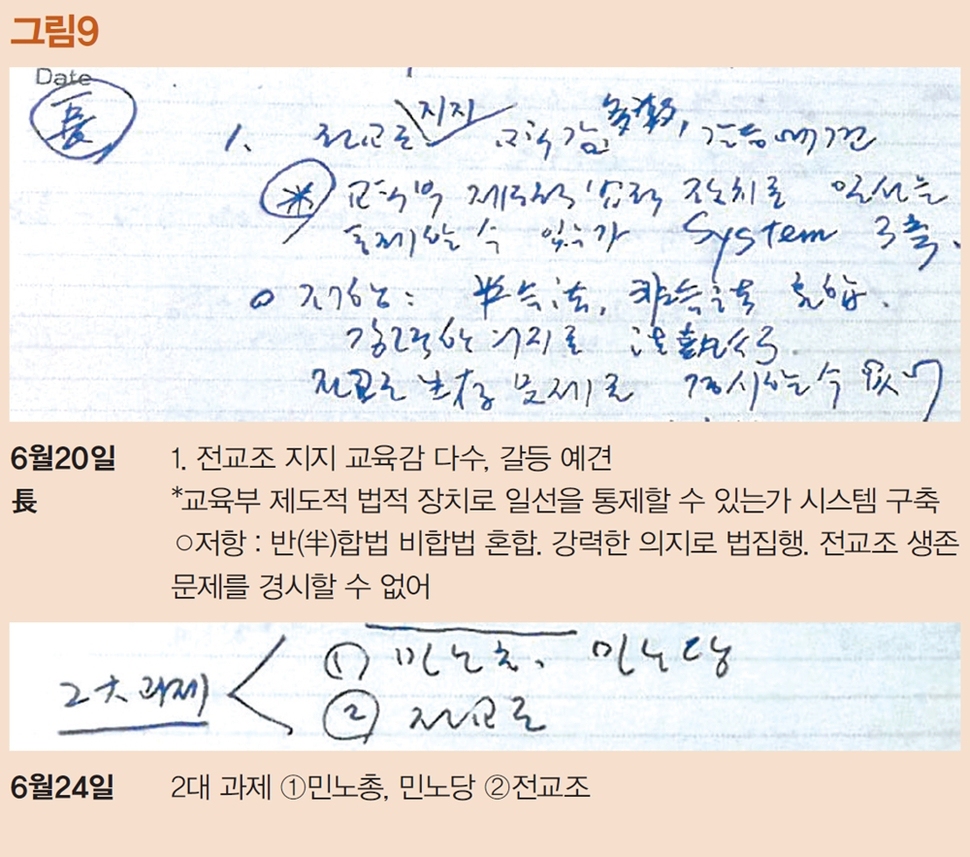 그림9
Date
長
1. 전교조 지지 교육감 多数, 갈등예견
* 교육부 제도적 법적 장치로 일선을
통제할 수 있는가 System 구축.
○ 저항: 半合法, 非合法 혼합.
강력한 의지로 法執行.
전교조 生存 문제를 경시할 수 없어
6월20일 1. 전교조 지지 교육감 다수, 갈등 예견
長 *교육부 제도적 법적 장치로 일선을 통제할 수 있는가 시스템 구축
○저항 : 반(半)합법 비합법 혼합. 강력한 의지로 법집행. 전교조 생존
문제를 경시할 수 없어
2大 과제 ① 민노총, 민노당
② 전교조
6월24일 2대 과제 ①민노총, 민노당 ②전교조